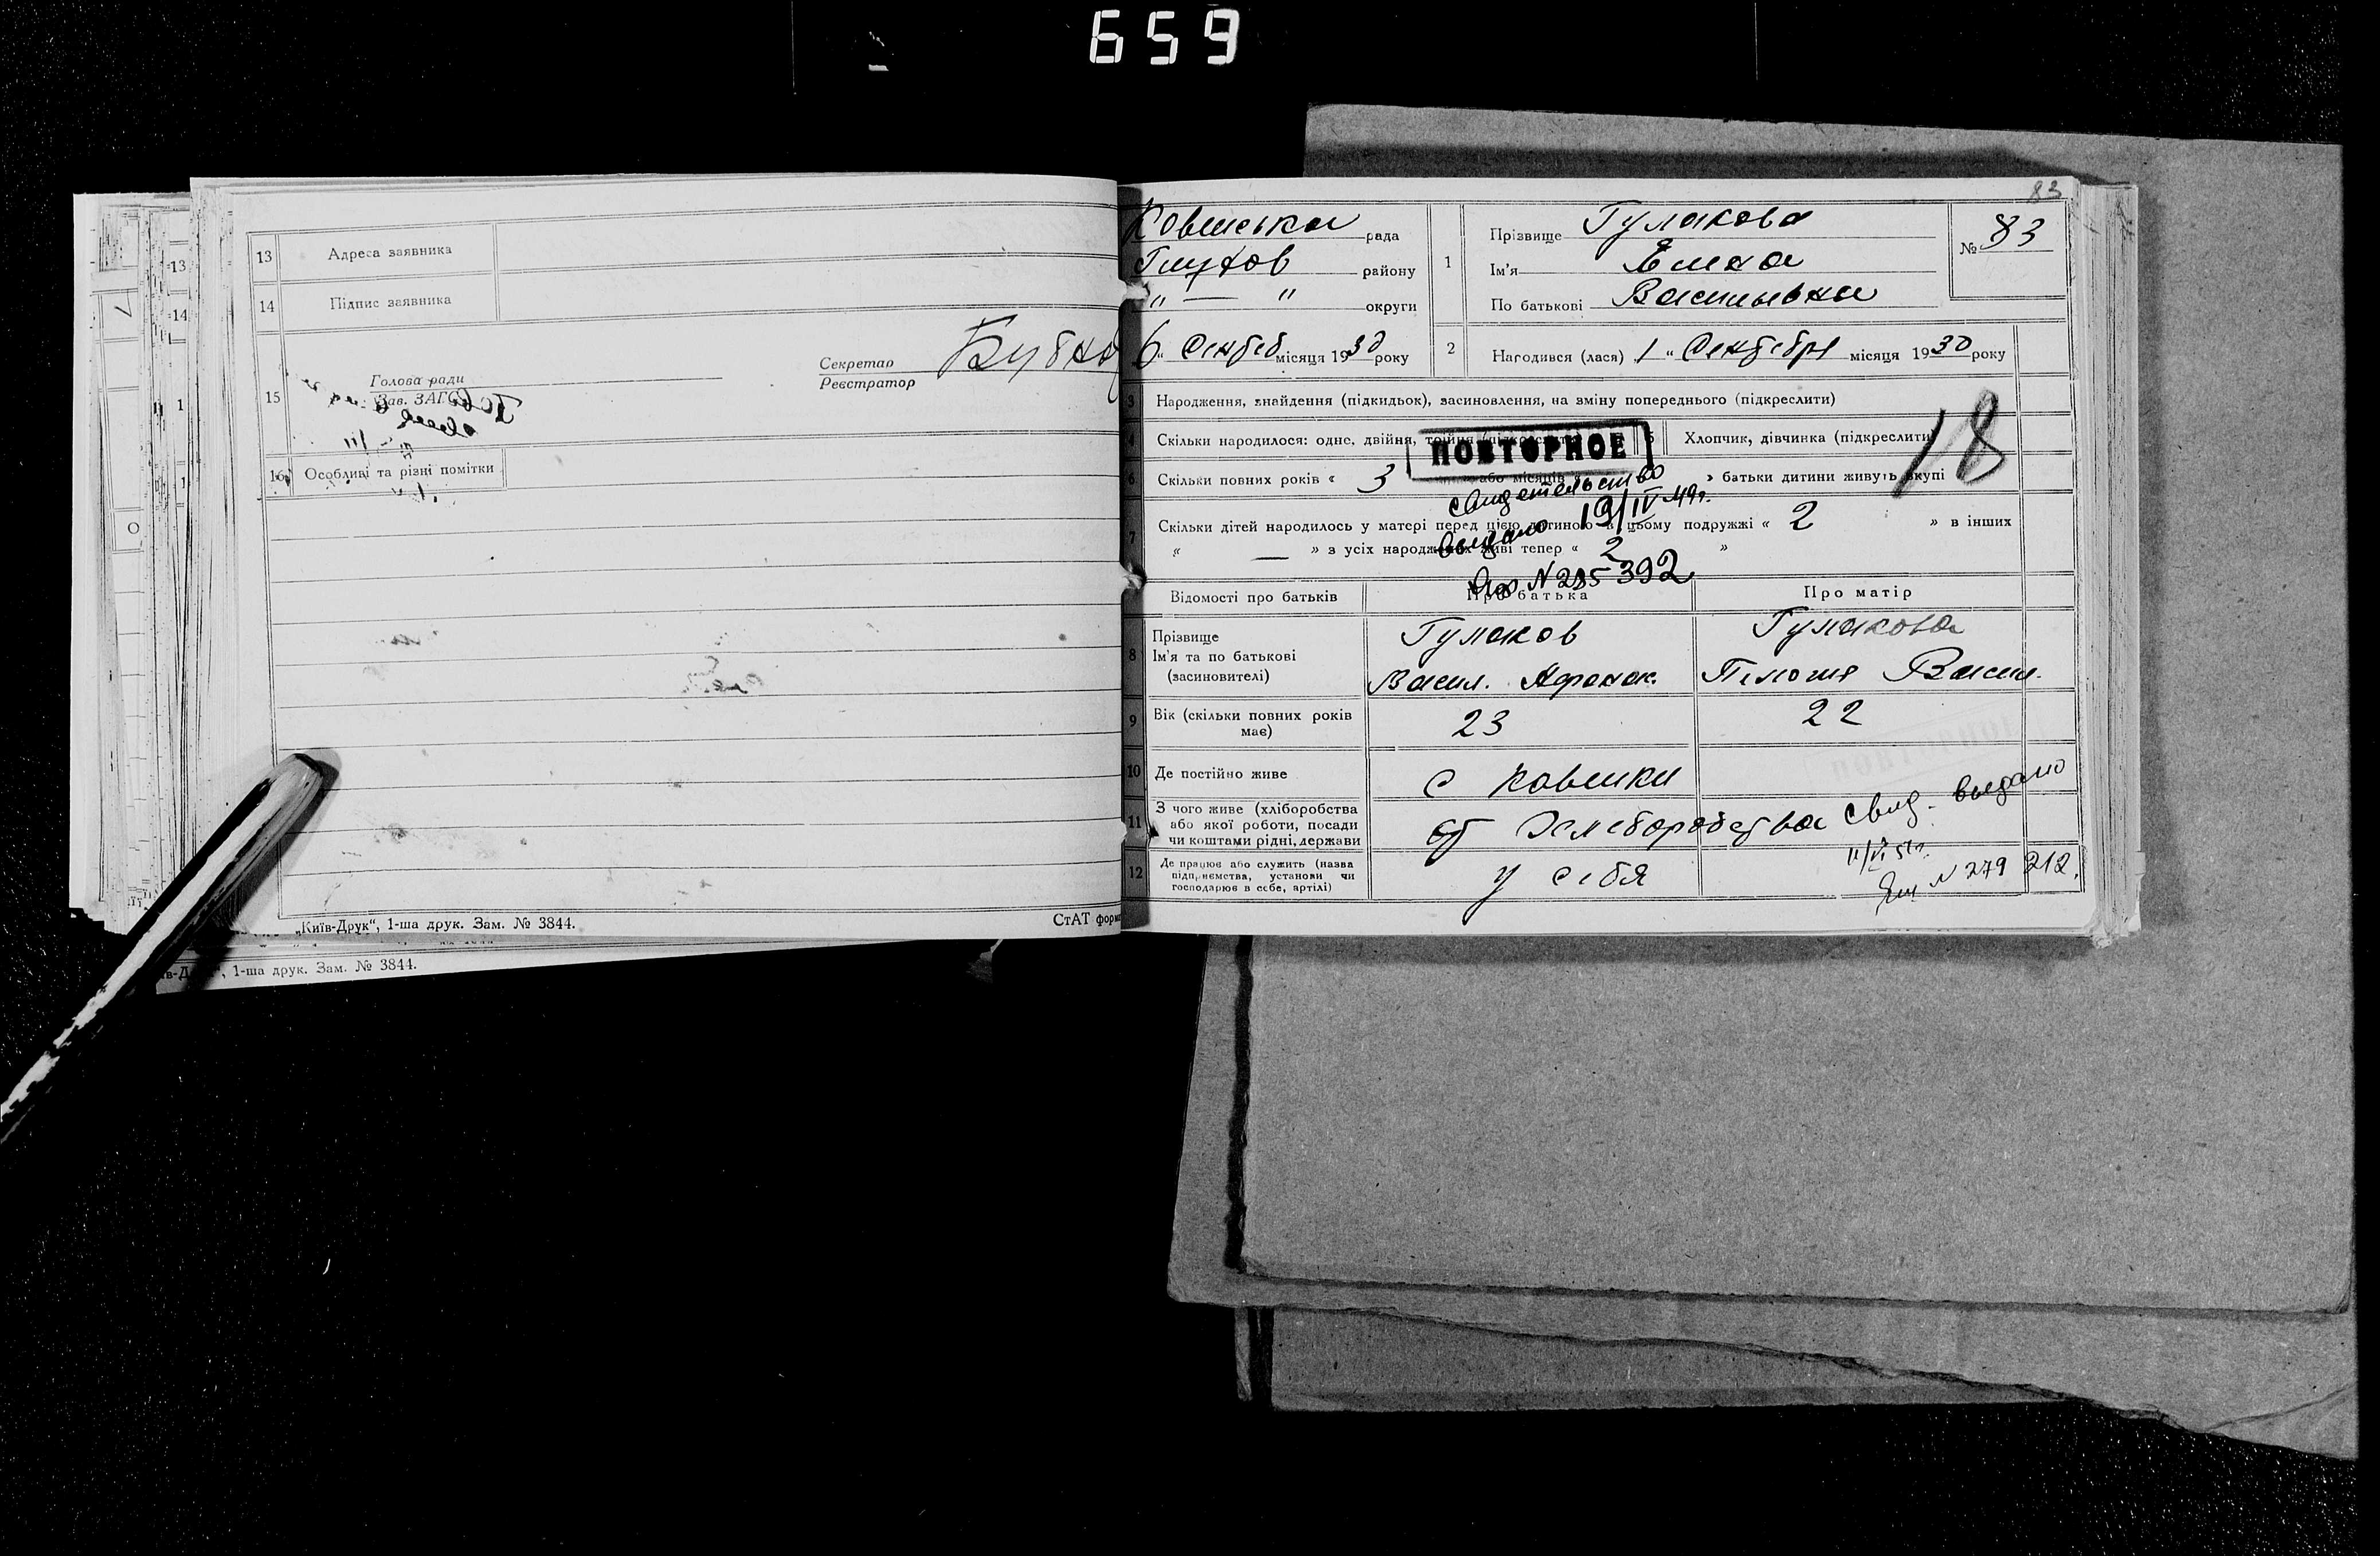 659
13 Адреса заявника
14 Підпис заявника
15 Голова ради
Зав. ЗАГС'ом
Секретар
Реєстратор
16 Особливі та різні помітки
„Київ-Друк“, 1-ша друк. Зам. № 3844.
СтАТ форм
, 1-ша друк. Зам. № 3844.
83
рада
Глухов району
" — " округи
6 " Сентеб місяця 1930 року
1 Прізвище Гулакова
Ім'я
По батькові Васильевна
№ 83
2 Народився (лася) 1 " Сентебря місяця 1930 року
3 Народження, знайдення (підкидьок), засиновлення, на зміну попереднього (підкреслити)
4 Скільки народилося: одне, двійня, трійня (підкреслити) 5 Хлопчик, дівчинка (підкреслити)
ПОВТОРНОЕ
18
6 Скільки повних років « 3 » або місяців « » батьки дитини живуть вкупі
свидетельство
выдано 19/IV 49г.
7 Скільки дітей народилось у матері перед цією дитиною в цьому подружжі « 2 » в інших
« — » з усіх народжених живі тепер « 2 »
N 285392
Відомості про батьків Про батька Про матір
8 Прізвище
Ім'я та по батькові
(засиновителі)
Гулаков
Васил. Афанас.
Гулакова
Васил.
9 Вік (скільки повних років має) 23 22
10 Де постійно живе с
11 З чого живе (хліборобства
або якої роботи, посади
чи коштами рідні, держави
свид. выдано
12 Де працює або служить (назва
підприємства, установи чи
господарює в себе, артілі)
у себя
N 279 212.